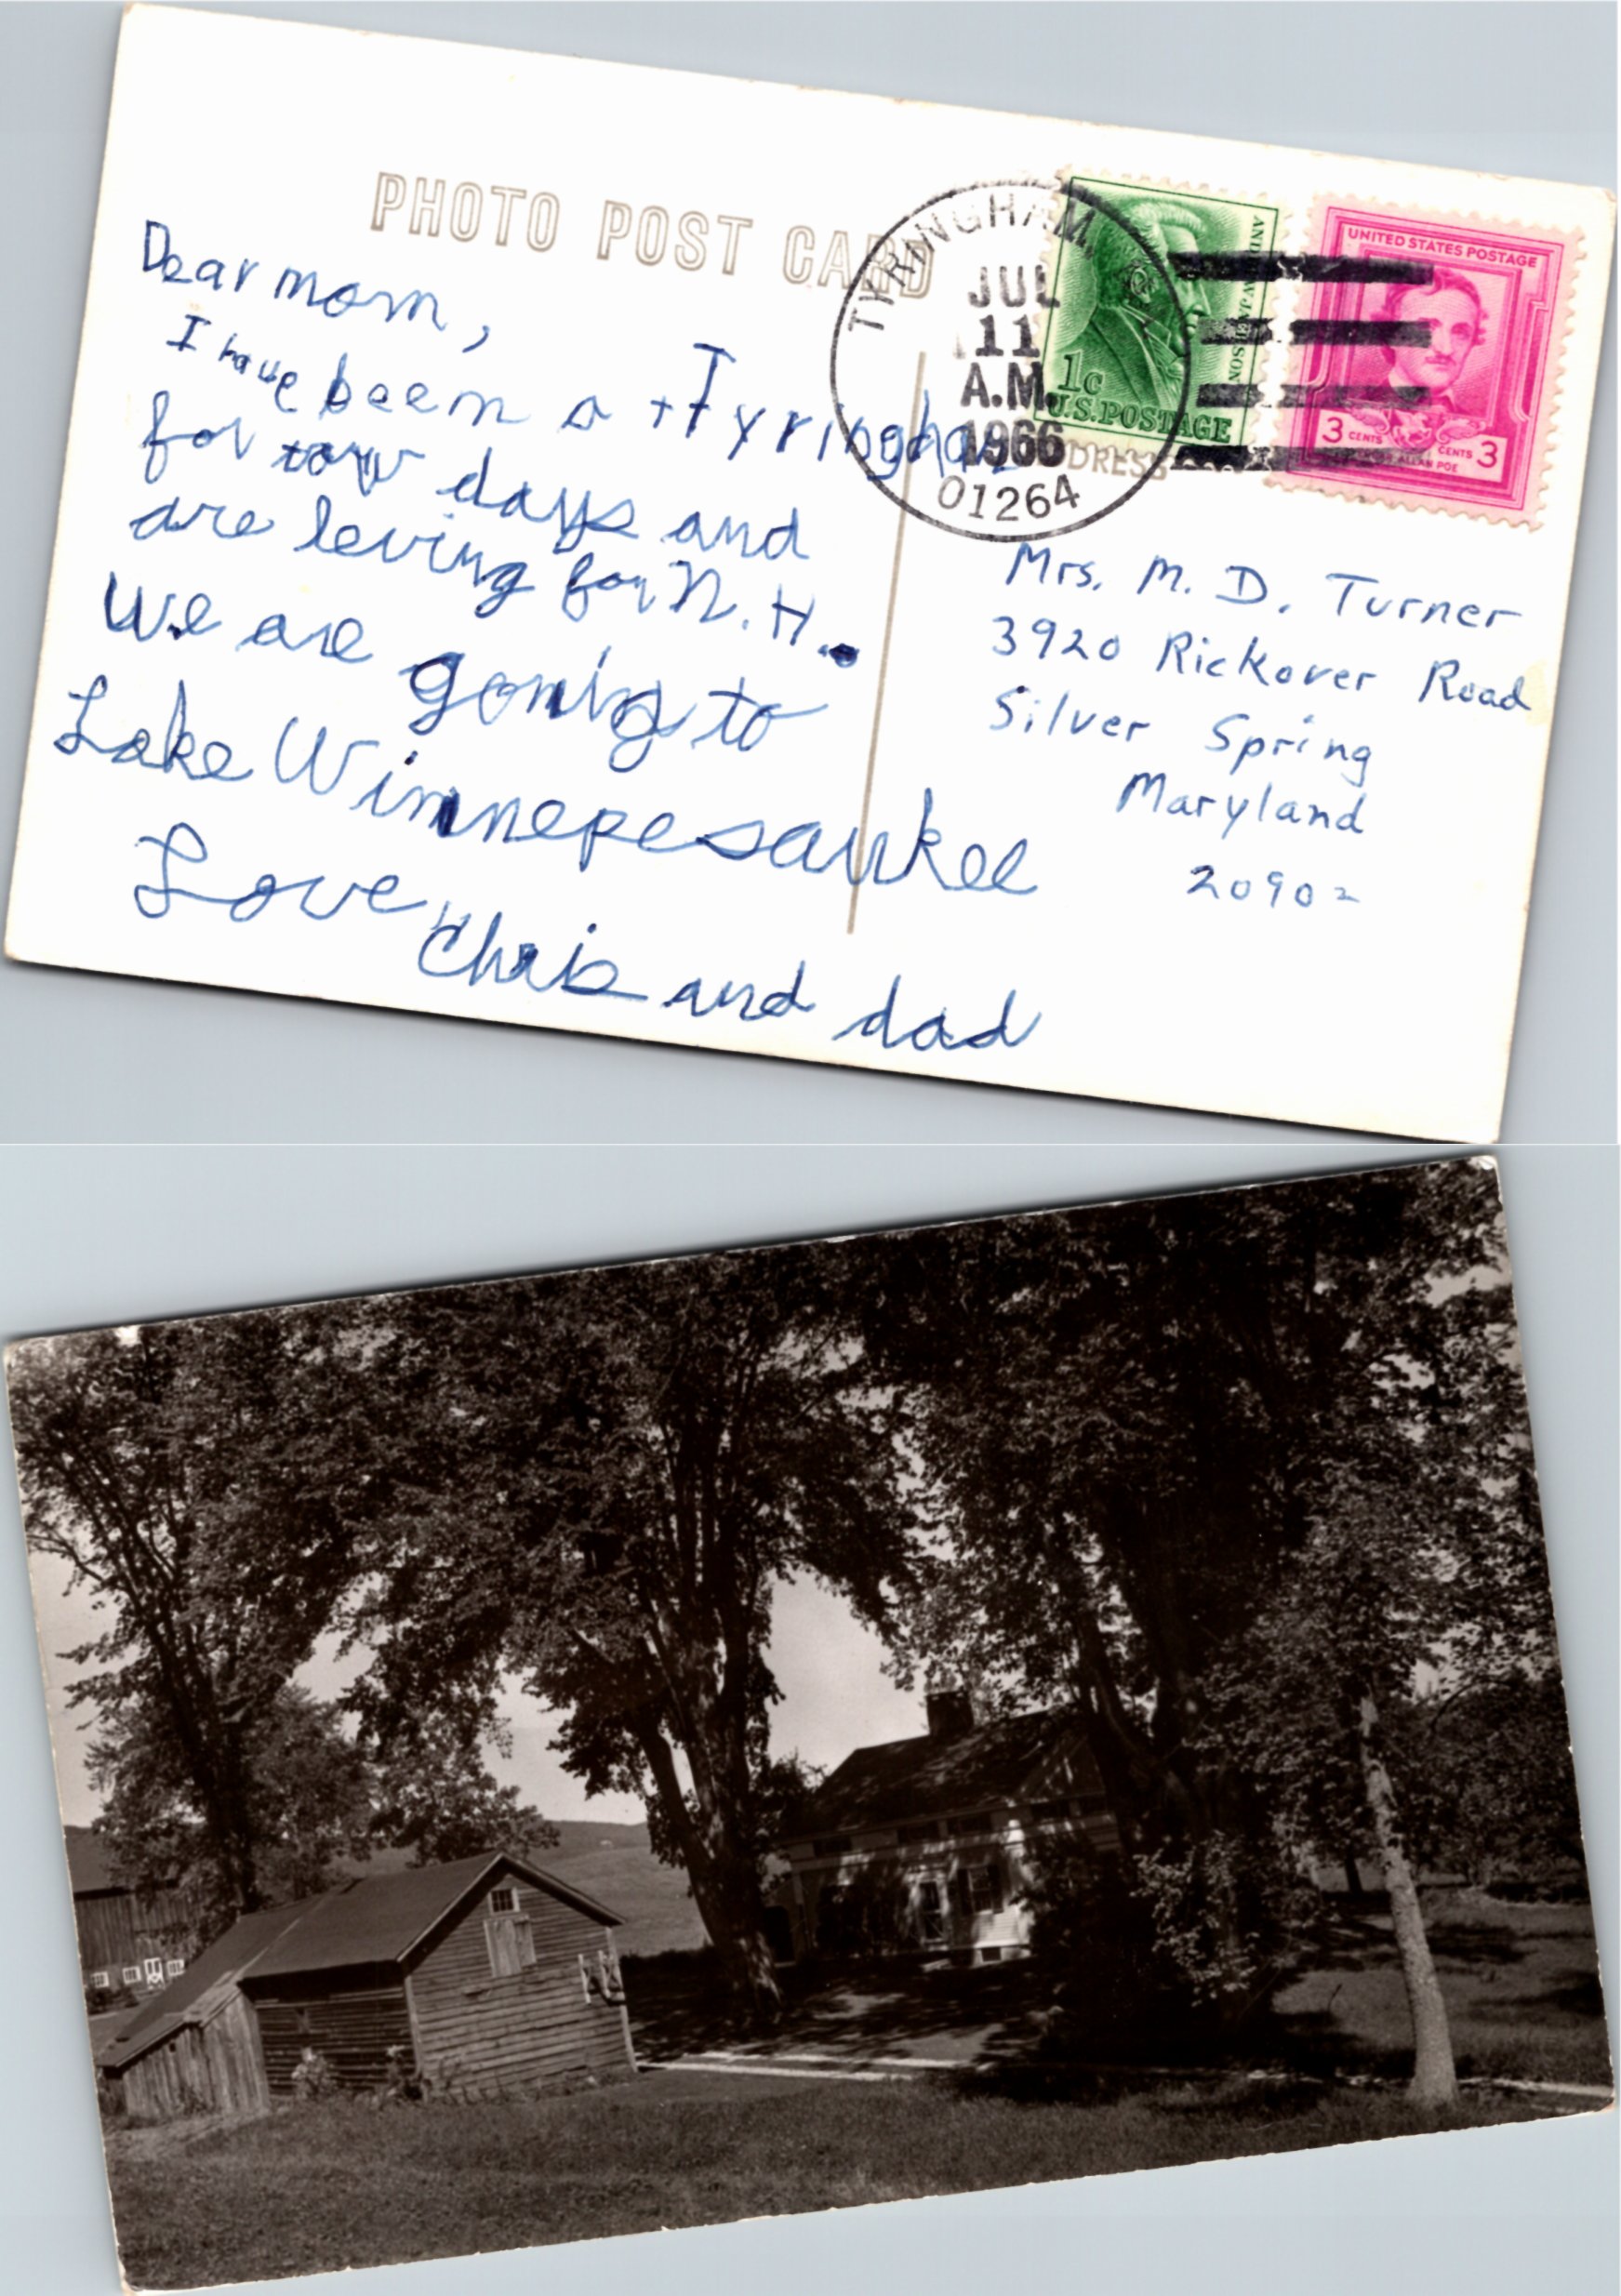 PHOTO POST CARD
Dear mom,
I have been at Tyringham
for tow days and
are leving for N.H.
We are gonig to
Lake Winnepesaukee
Love,
Chris and dad
TYRINGHAM,
JUL
11
A.M.
1966
01264
ANDREW JACKSON
1c
U.S. POSTAGE
UNITED STATES POSTAGE
3 CENTS CENTS 3
EDGAR ALLAN POE
ADDRESS
Mrs. M. D. Turner
3920 Rickover Road
Silver Spring
Maryland
20902